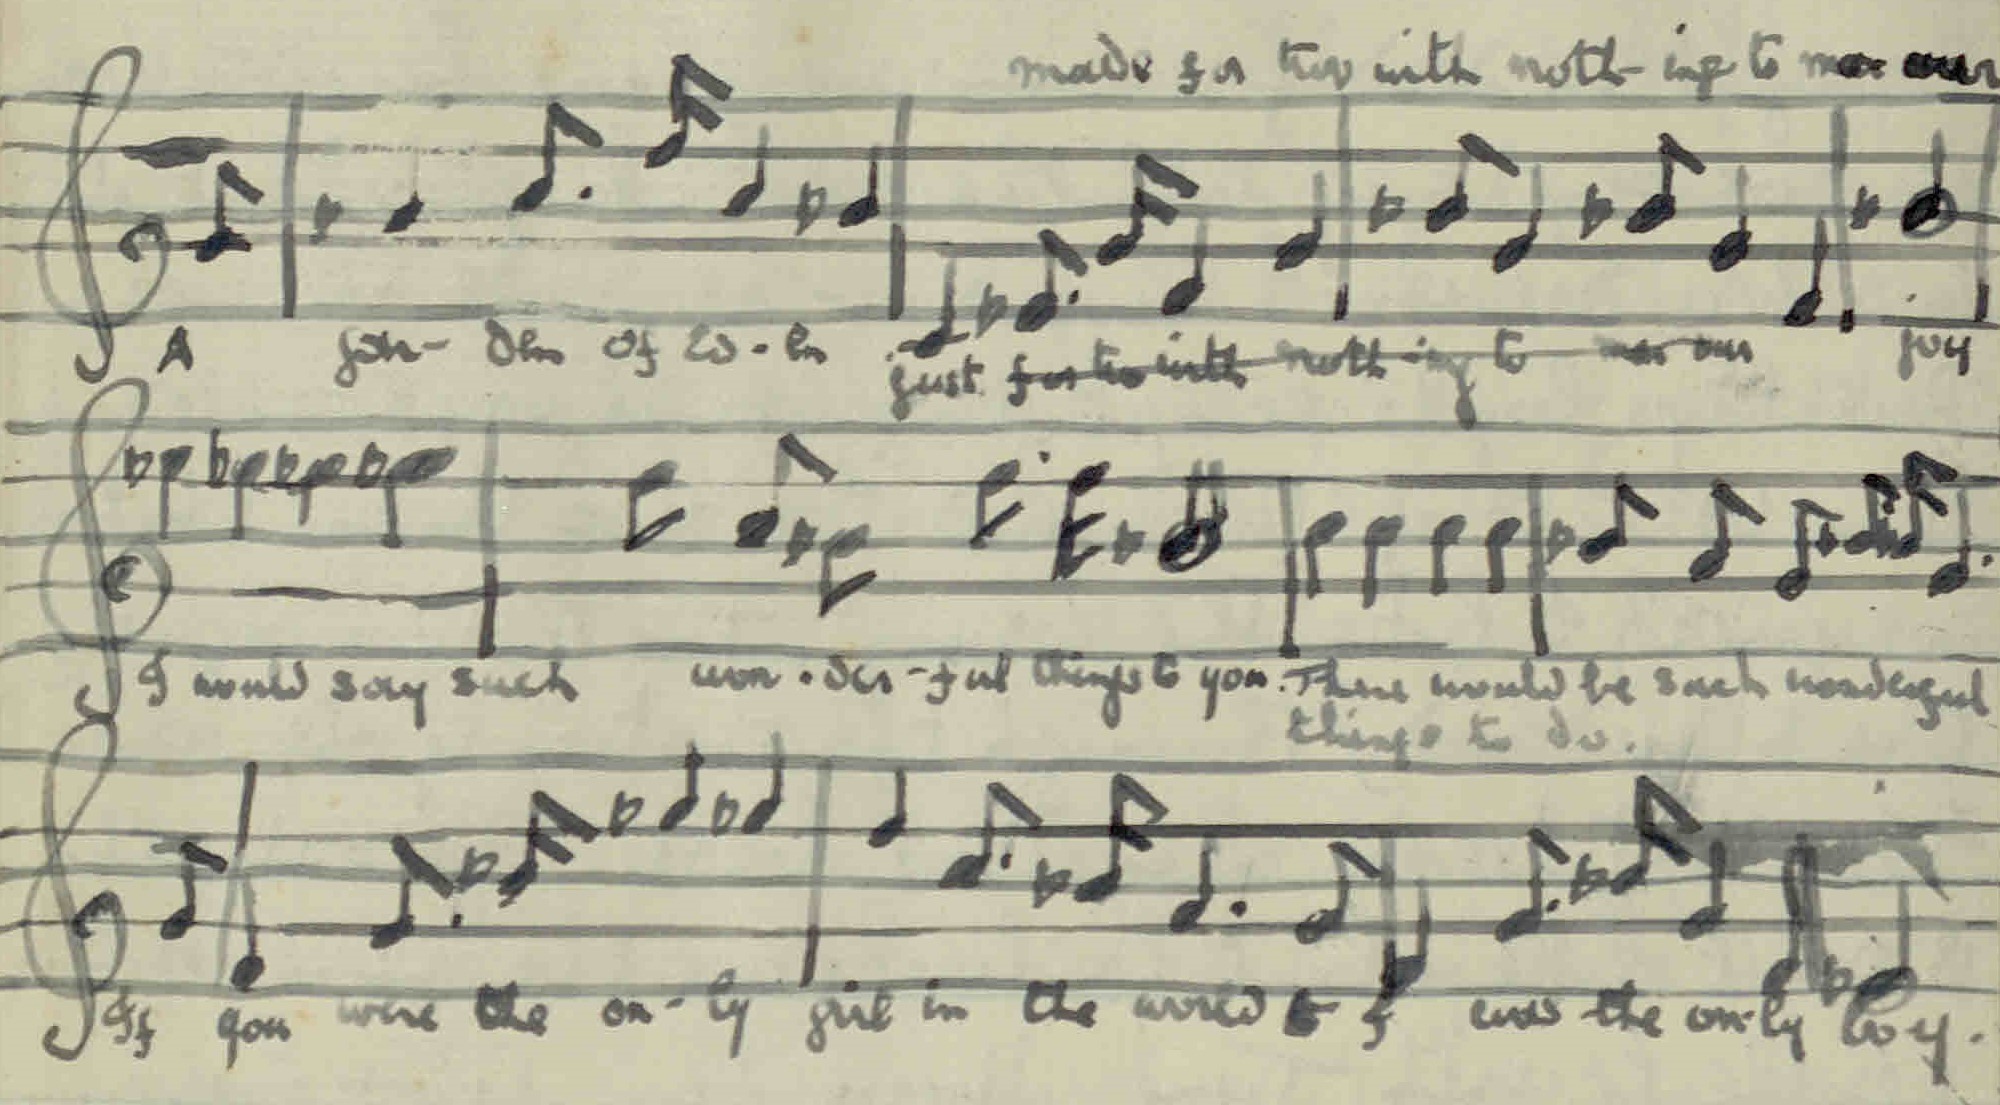 made for two with noth-ing to mar our
A gar-den of E-den just for two with noth-ing to mar our joy
I would say such won-der-ful things to you. There would be such wonderful
things to do.
If you were the on-ly girl in the world & I was the on-ly boy.